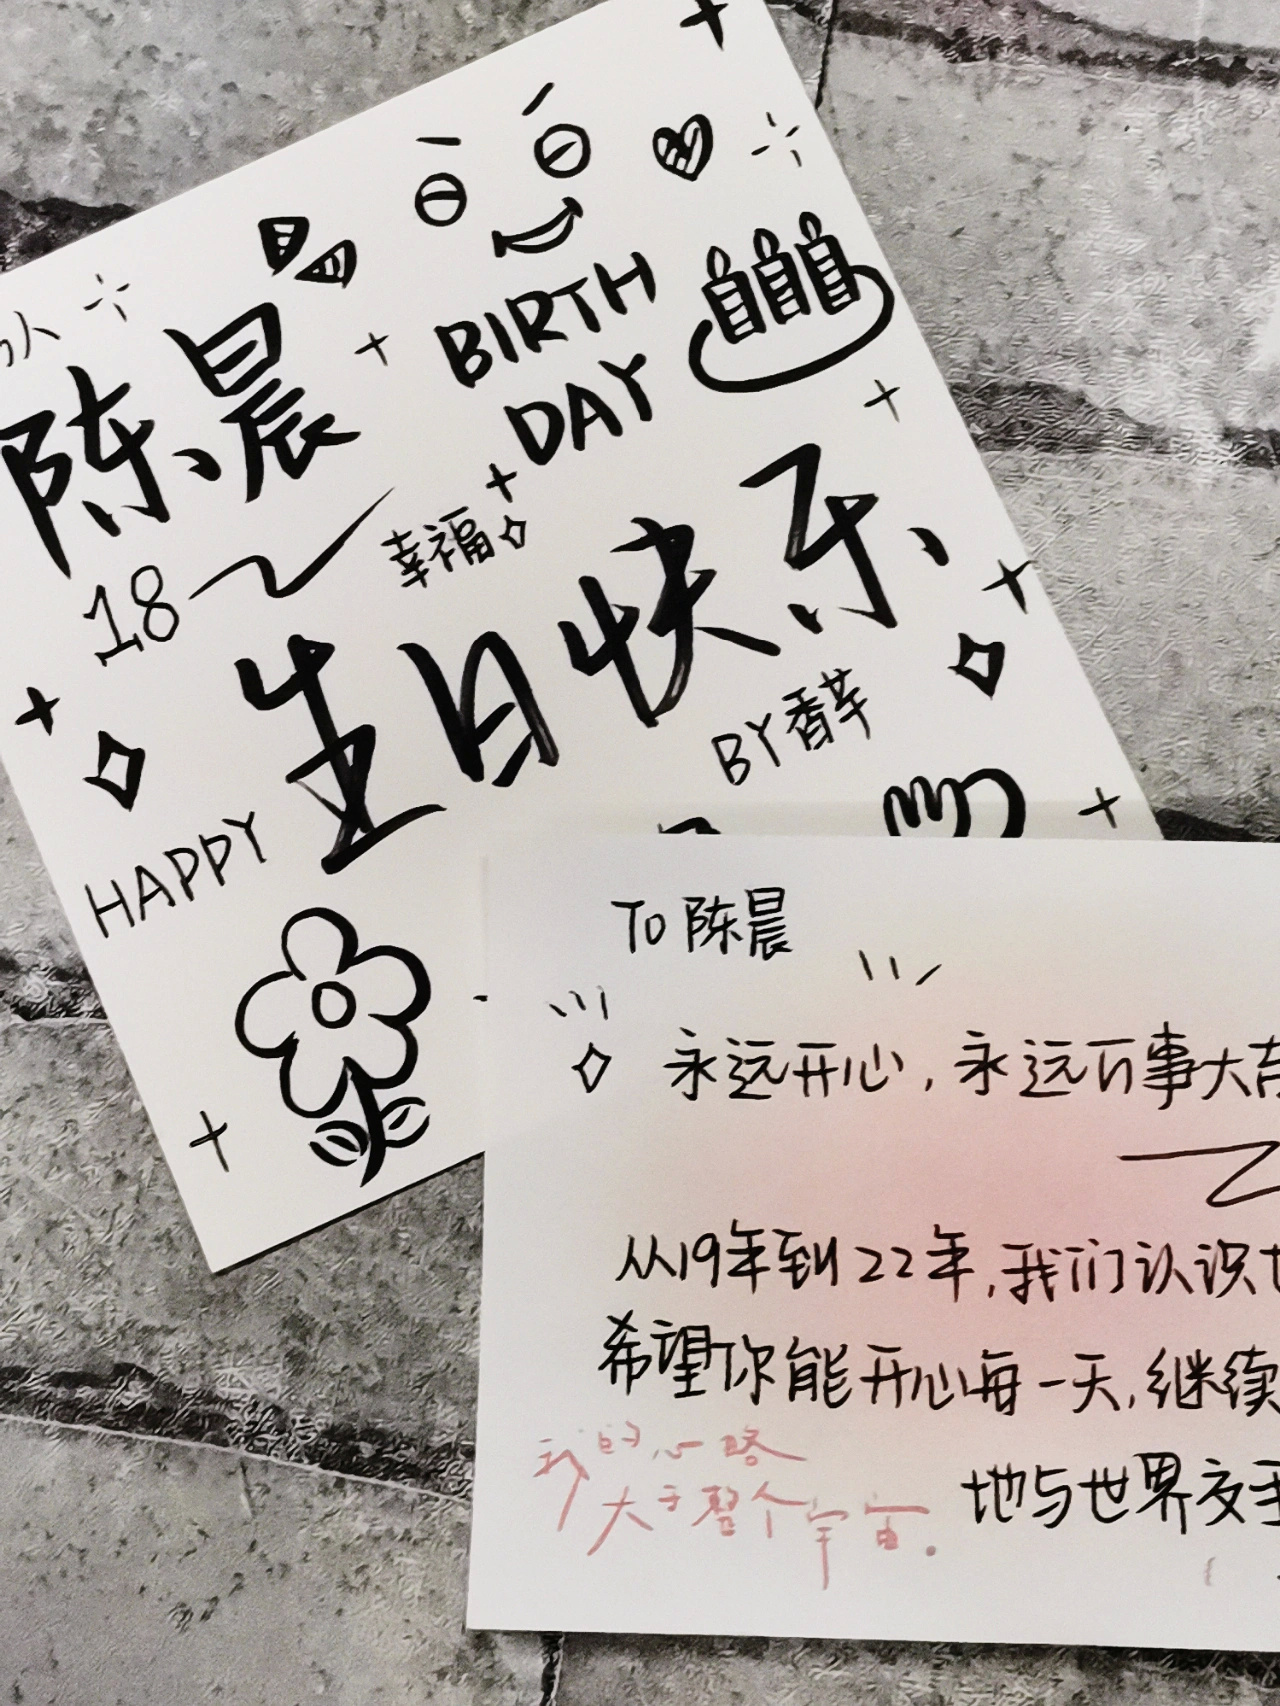 陈晨
BIRTH
DAY
18
幸福
生日快乐
BY香芋
HAPPY
TO 陈晨
永远开心，永远万事大吉
从19年到22年，我们认识
希望你能开心每一天，继续
地与世界交手
我的心略
大于整个宇宙。